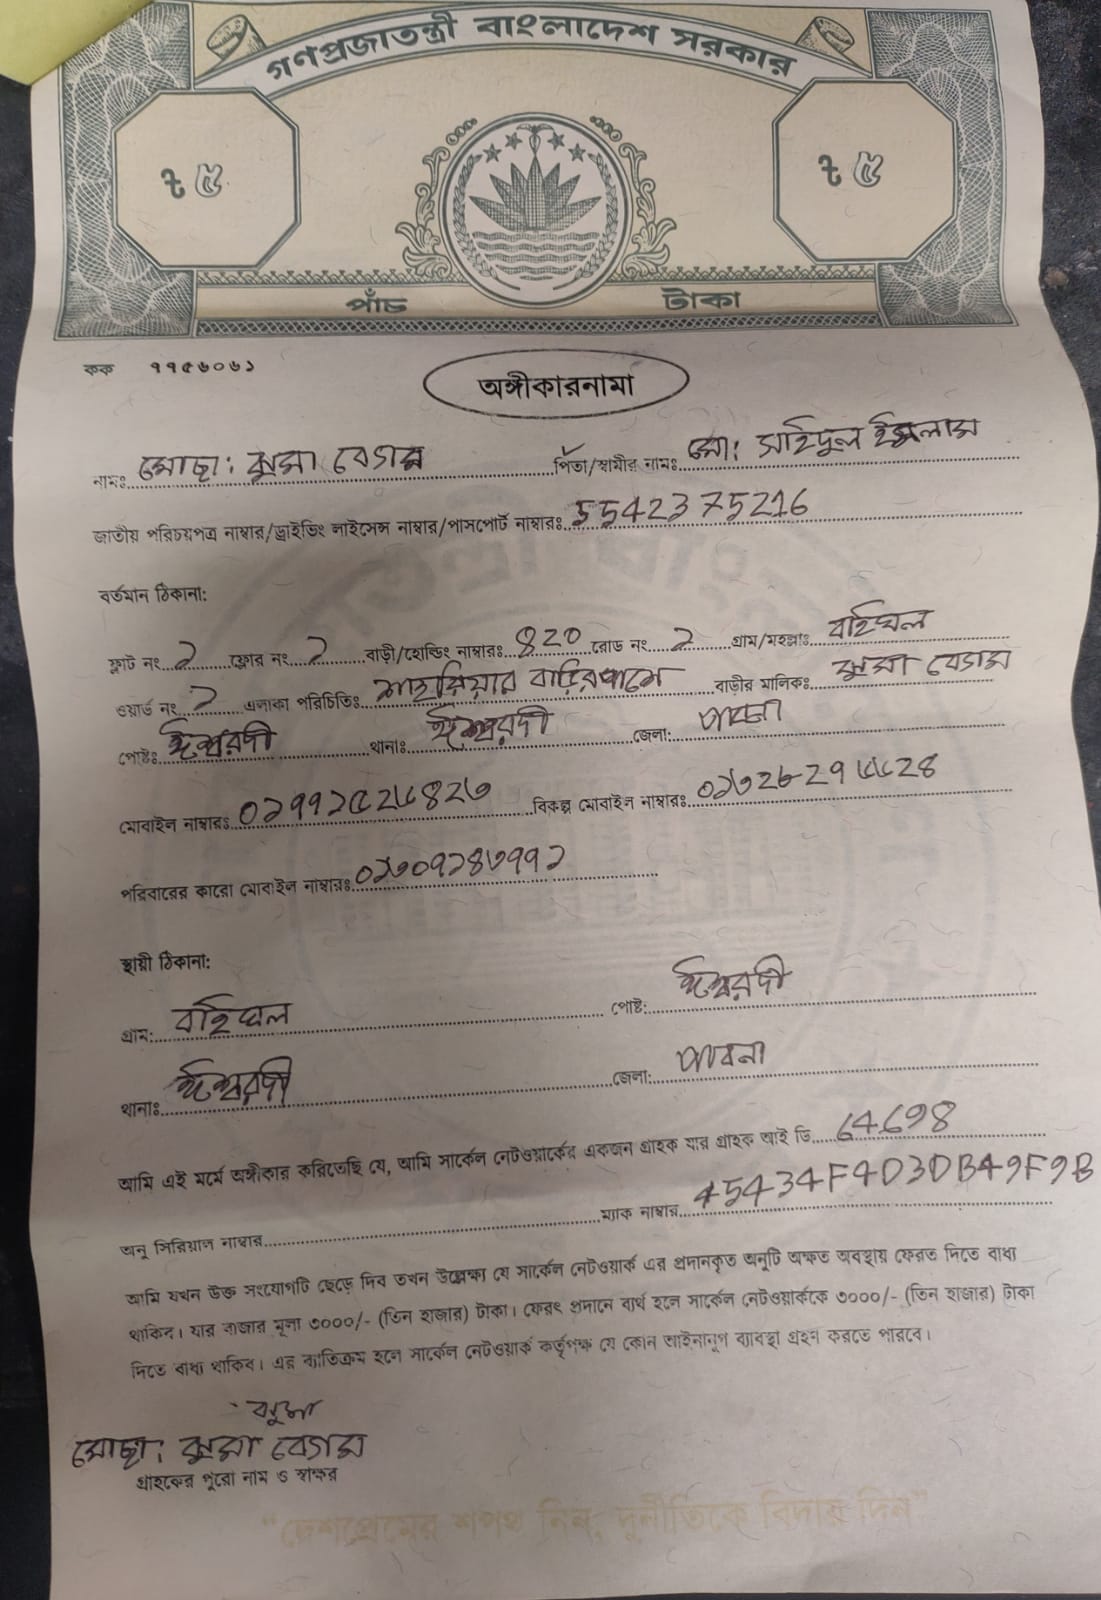 গণপ্রজাতন্ত্রী বাংলাদেশ সরকার
৳ ৫
৳ ৫
পাঁচ টাকা
কক ৭৭৫৬০৬১
অঙ্গীকারনামা
নামঃ মোছা: ঝুমা বেগম পিতা/স্বামীর নামঃ মো: সাইদুল ইসলাম
জাতীয় পরিচয়পত্র নাম্বার/ড্রাইভিং লাইসেন্স নাম্বার/পাসপোর্ট নাম্বারঃ 5542375216
বর্তমান ঠিকানা:
ফ্লাট নং ২ ফ্লোর নং ২ বাড়ী/হোল্ডিং নাম্বারঃ ৪২০ রোড নং ২ গ্রাম/মহল্লাঃ
ওয়ার্ড নং ২ এলাকা পরিচিতিঃ শাহরিয়ার বাড়ির পাশে বাড়ীর মালিকঃ ঝুমা বেগম
পোষ্টঃ ঈশ্বরদী থানাঃ ঈশ্বরদী জেলা: পাবনা
মোবাইল নাম্বারঃ বিকল্প মোবাইল নাম্বারঃ
পরিবারের কারো মোবাইল নাম্বারঃ
স্থায়ী ঠিকানা:
গ্রাম: পোষ্ট: ঈশ্বরদী
থানাঃ ঈশ্বরদী জেলা: পাবনা
আমি এই মর্মে অঙ্গীকার করিতেছি যে, আমি সার্কেল নেটওয়ার্কের একজন গ্রাহক যার গ্রাহক আই ডি 64698
অনু সিরিয়াল নাম্বার ম্যাক নাম্বার 45434F4D3DB49F9B
আমি যখন উক্ত সংযোগটি ছেড়ে দিব তখন উল্লেক্ষ্য যে সার্কেল নেটওয়ার্ক এর প্রদানকৃত অনুটি অক্ষত অবস্থায় ফেরত দিতে বাধ্য
থাকিব। যার বাজার মূল্য ৩০০০/- (তিন হাজার) টাকা। ফেরৎ প্রদানে ব্যর্থ হলে সার্কেল নেটওয়ার্ককে ৩০০০/- (তিন হাজার) টাকা
দিতে বাধ্য থাকিব। এর ব্যতিক্রম হলে সার্কেল নেটওয়ার্ক কর্তৃপক্ষ যে কোন আইনানুগ ব্যবস্থা গ্রহন করতে পারবে।
ঝুমা
মোছা: ঝুমা বেগম
গ্রাহকের পুরো নাম ও স্বাক্ষর
“দেশপ্রেমের শপথ নিন, দুর্নীতিকে বিদায় দিন”